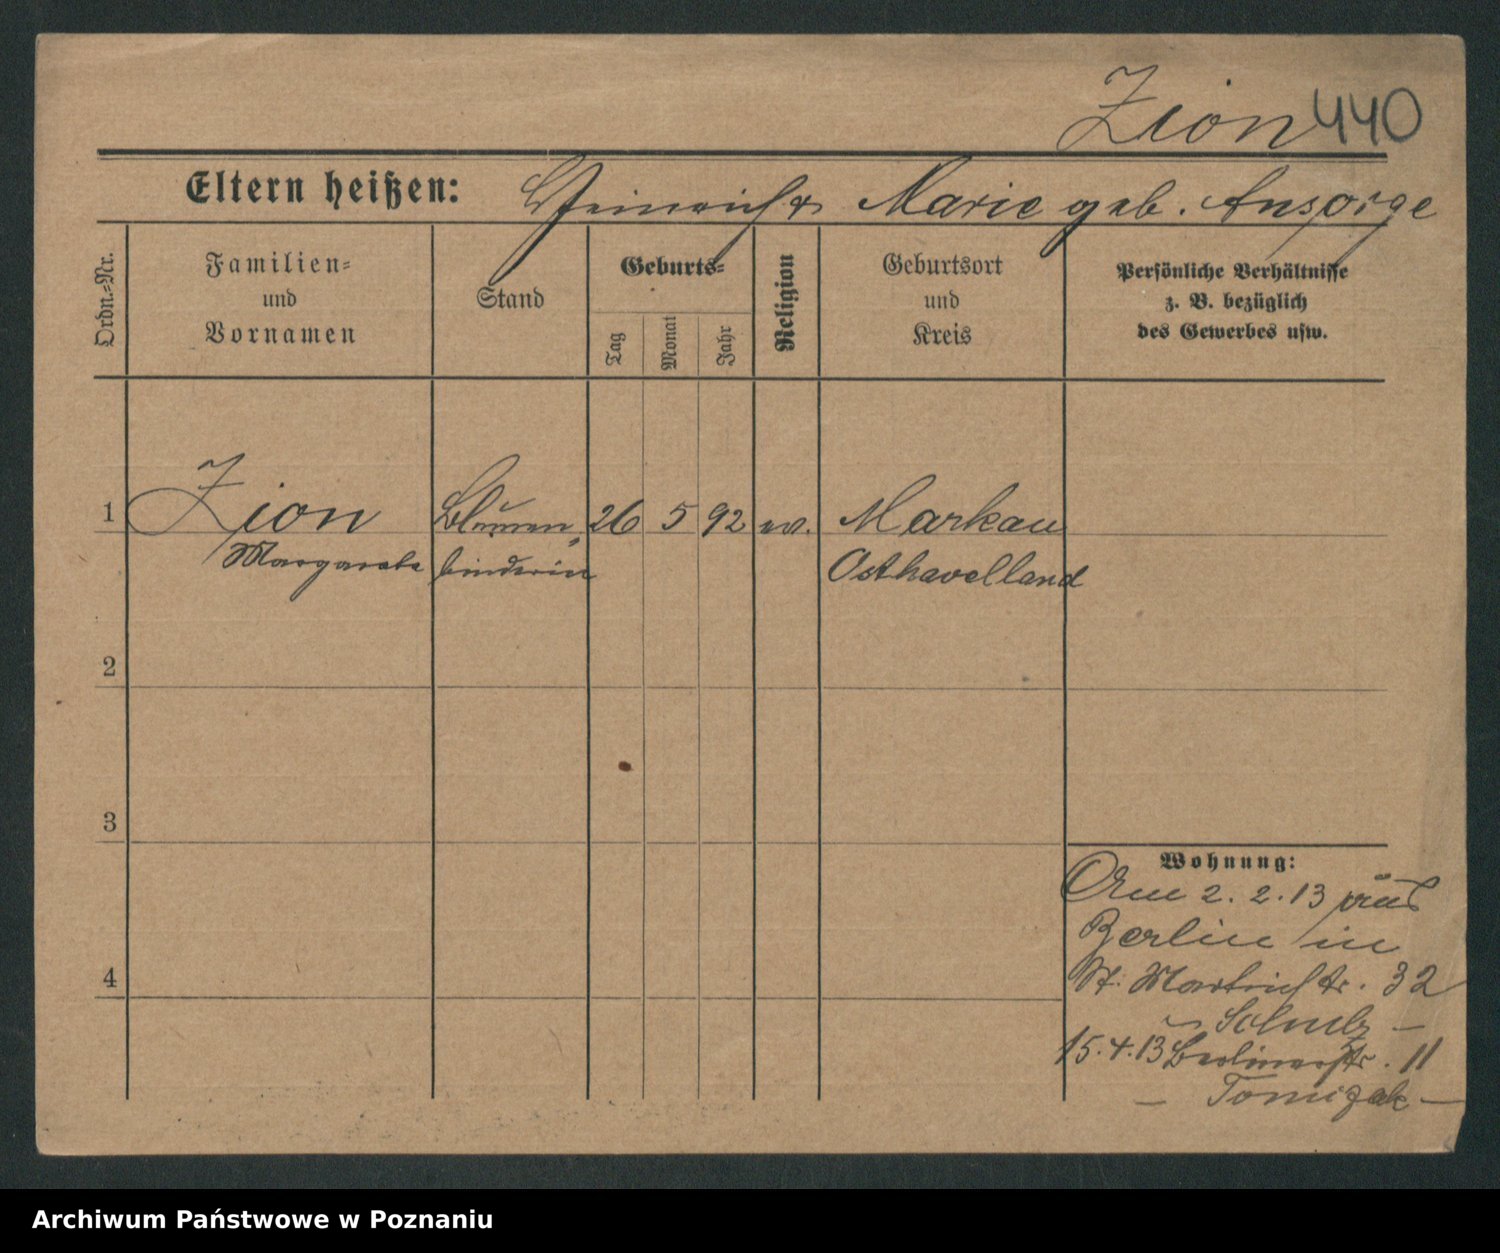 Zion 440
Eltern heißen: Heinrich & Marie geb. Ansorge
Ordn.=Nr.
Familien=
und
Vornamen
Stand
Geburts=
Tag
Monat
Jahr
Religion
Geburtsort
und
Kreis
Persönliche Verhältnisse
z. B. bezüglich
des Gewerbes usw.
1 Zion Blumen 26 5 92 ev. Markau
Margarete binderin Osthavelland
2
3
4
Wohnung:
Am 2. 2. 13 aus
Berlin in
St. Martinstr. 32
15.4.13 Berlinerstr. 11
— Tomizak —
Archiwum Państwowe w Poznaniu